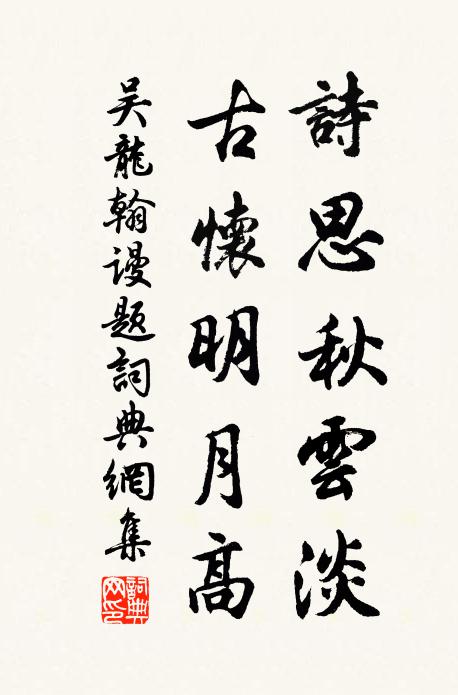 詩思秋雲淡
古懷明月高
吴龍翰謾题詞典網集
詞典網印